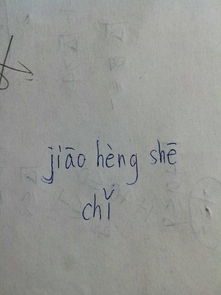 jiāo hèng shē
chǐ